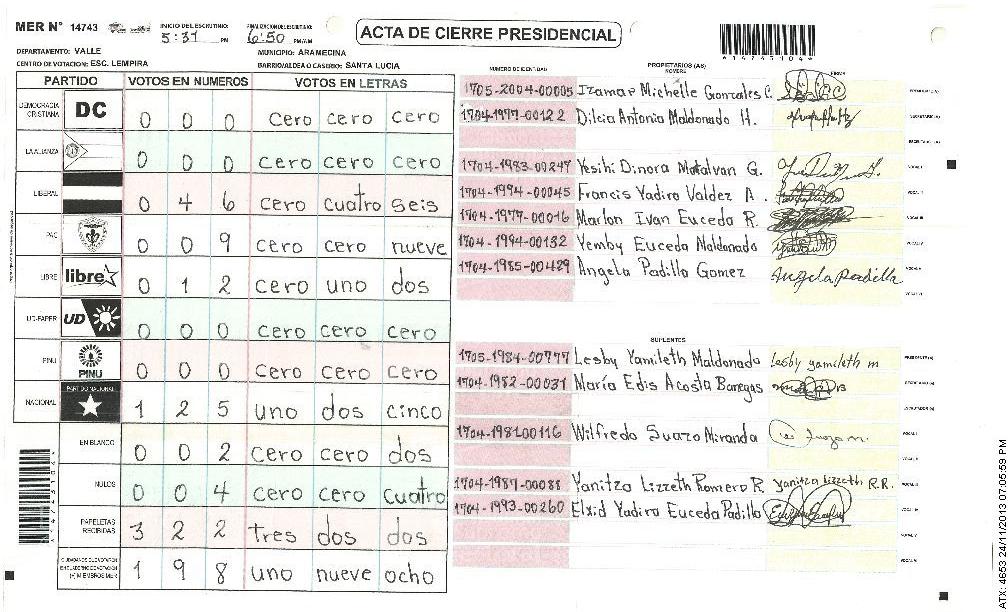 MER N° 14743 INICIO DEL ESCRUTINIO: 5:31 PM FINALIZACION DEL ESCRUTINIO: 6:50 PM/AM ACTA DE CIERRE PRESIDENCIAL
DEPARTAMENTO: VALLE MUNICIPIO: ARAMECINA
CENTRO DE VOTACION: ESC. LEMPIRA BARRIO/ALDEA O CASERIO: SANTA LUCIA
PARTIDO VOTOS EN NUMEROS VOTOS EN LETRAS
DEMOCRACIA CRISTIANA DC 0 0 0 cero cero cero
LA ALIANZA 0 0 0 cero cero cero
LIBERAL 0 4 6 cero cuatro seis
PAC 0 0 9 cero cero nueve
LIBRE libre 0 1 2 cero uno dos
UD-FAPER UD 0 0 0 cero cero cero
PINU PINU 0 0 0 cero cero cero
NACIONAL PARTIDO NACIONAL 1 2 5 uno dos cinco
EN BLANCO 0 0 2 cero cero dos
NULOS 0 0 4 cero cero cuatro
PAPELETAS RECIBIDAS 3 2 2 tres dos dos
(+) MIEMBROS MER 1 9 8 uno nueve ocho
NUMERO DE IDENTIDAD PROPIETARIOS (AS) NOMBRE FIRMA
1705-2004-00005 Izamar Michelle Gonzales C.
1704-1977-00122 Dilcia Antonia Maldonado H.
1704-1983-00247 Yesihi Dinora Matalvan G.
1704-1994-00045 Francis Yadira Valdez A.
1704-1977-00016 Marlon Ivan Euceda R.
1704-1994-00132 Yemby Euceda Maldonado
1704-1985-00429 Angela Padilla Gomez Angela Padilla
SUPLENTES
1705-1984-00777 Lesby Yamileth Maldonado Lesby yamileth m
1704-1982-00031 Maria Edis Acosta Banegas
1704-1981-00116 Wilfredo Suazo Miranda
1704-1987-00088 Yanitza Lizzeth Romero R. Yanitza Lizzeth R.R.
1704-1993-00260 Elxid Yadira Euceda Padilla
ATX: 4653 24/11/2013 07:05:59 PM